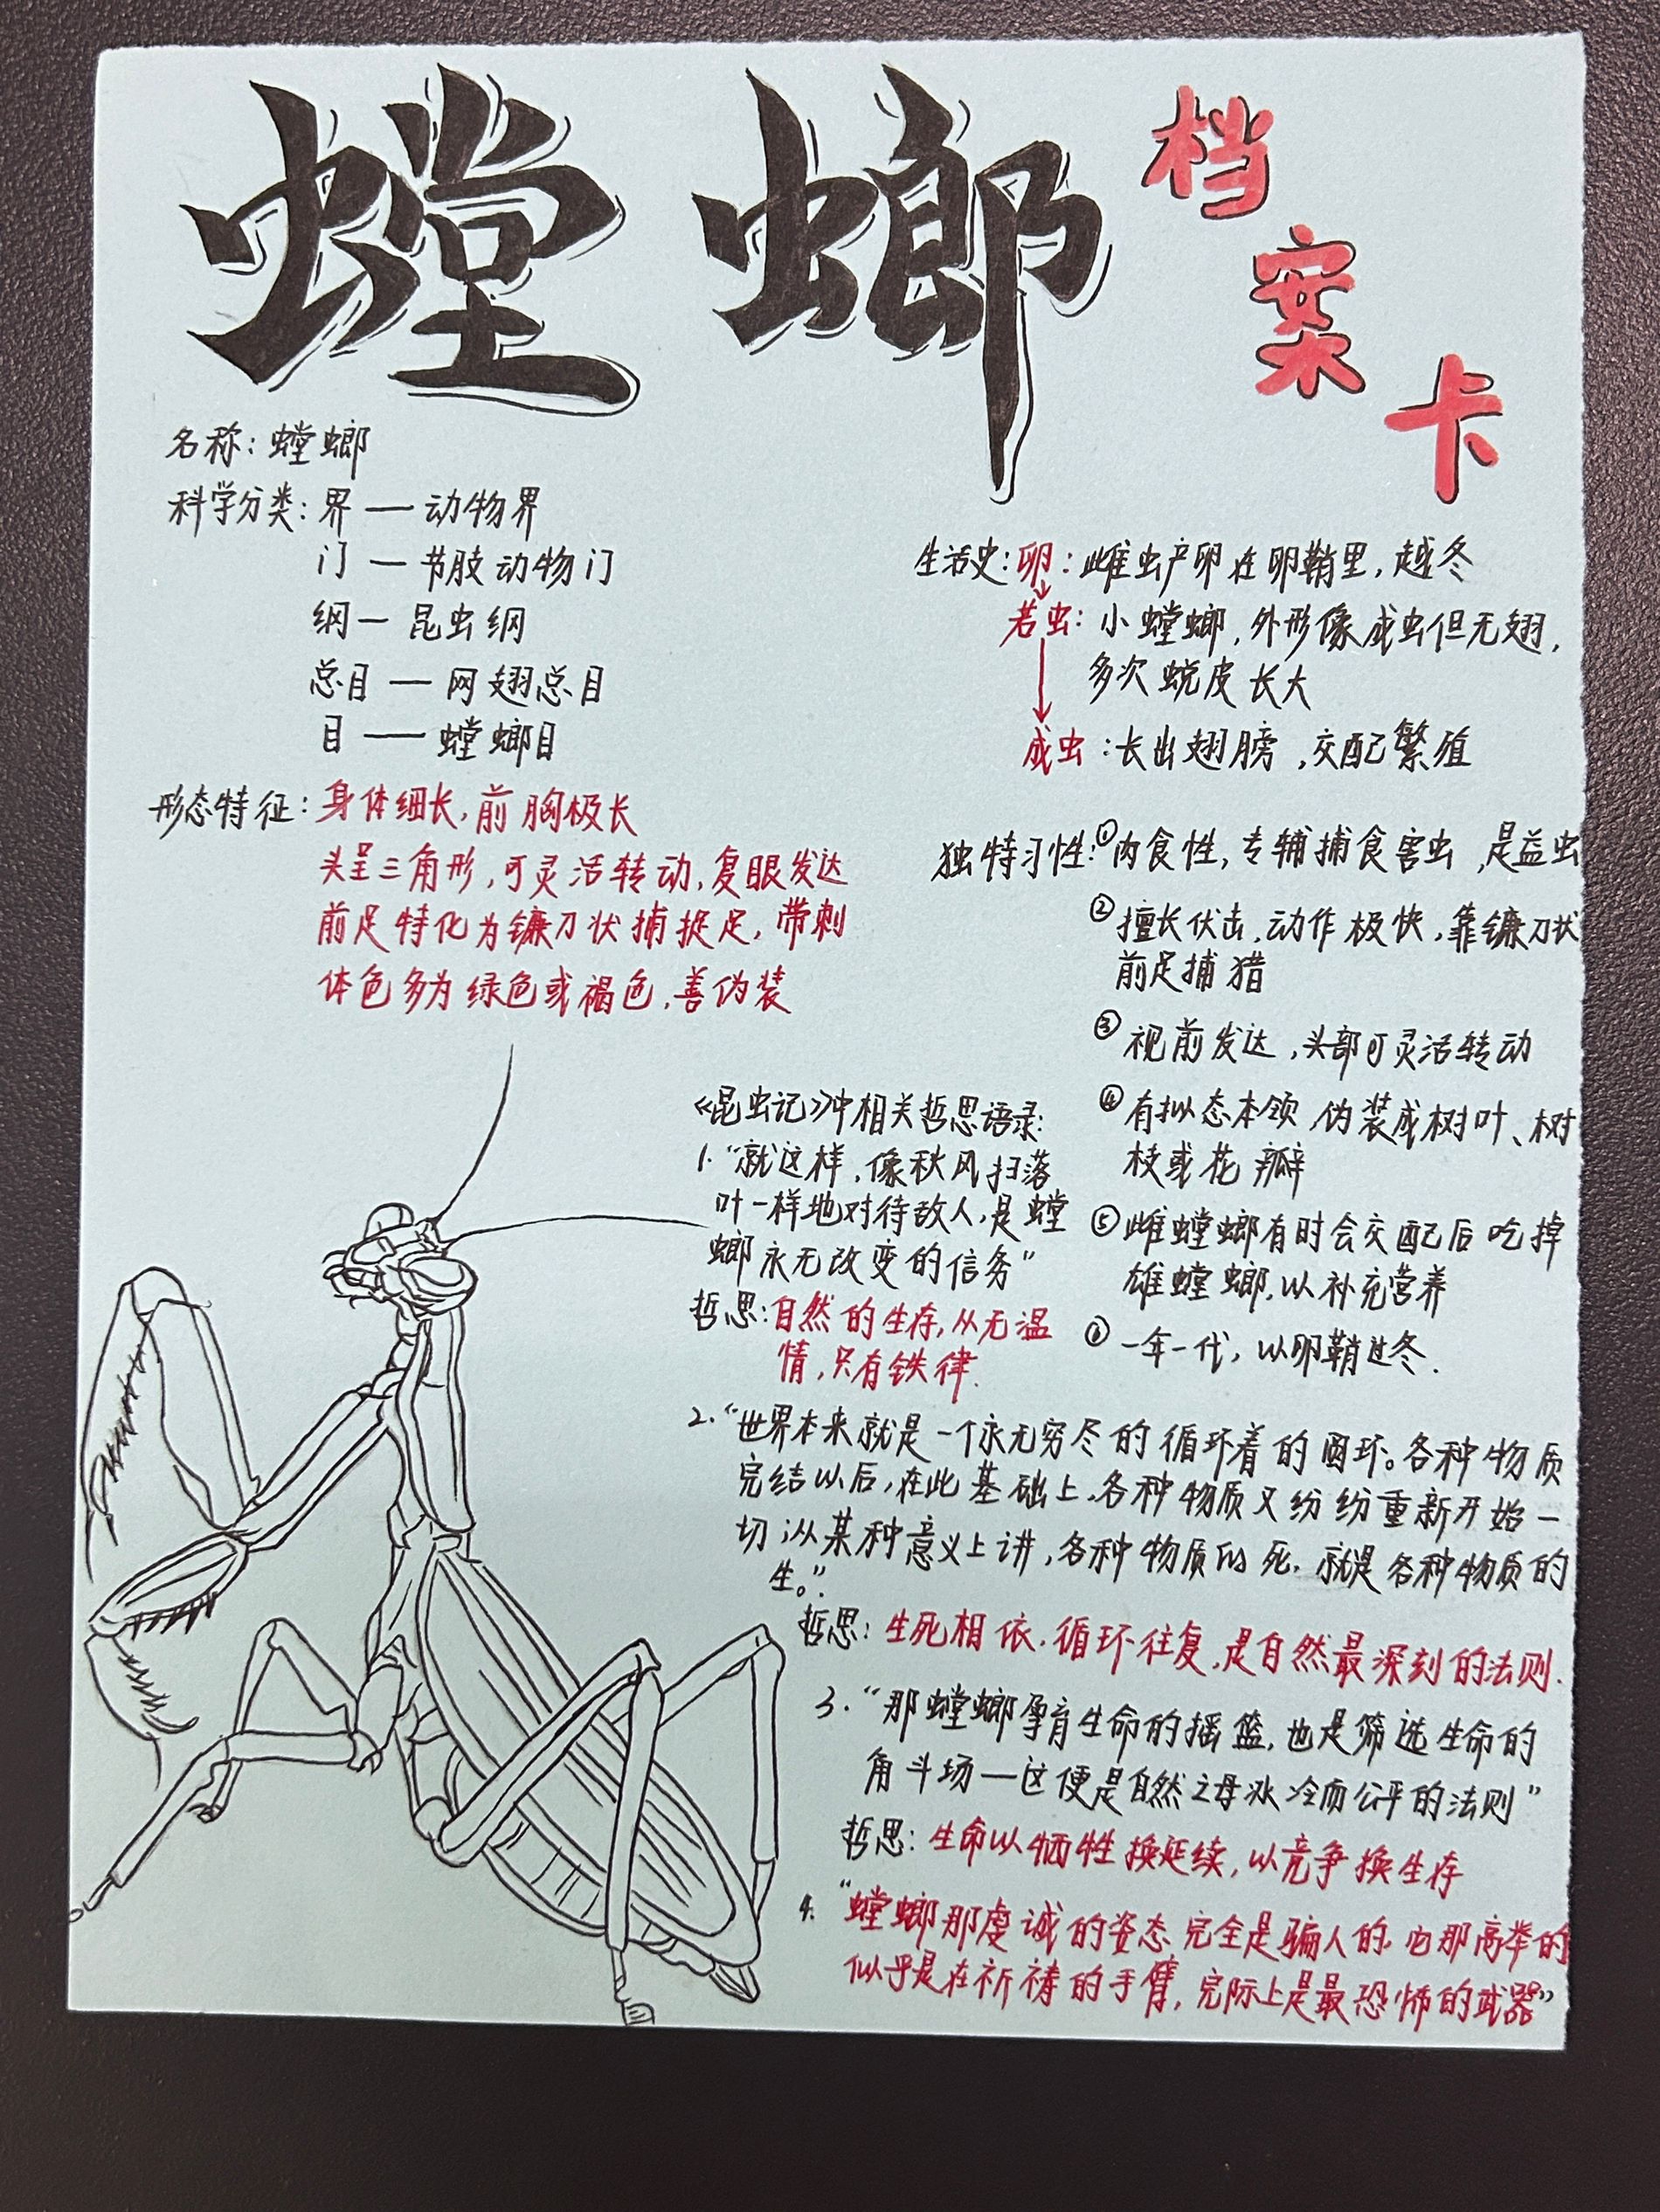 螳螂
档案卡
名称：螳螂
科学分类：界——动物界
门—节肢动物门
纲—昆虫纲
总目—网翅总目
目——螳螂目
形态特征：身体细长，前胸极长
头呈三角形，可灵活转动，复眼发达
前足特化为镰刀状捕捉足，带刺
体色多为绿色或褐色，善伪装
生活史：卵：雌虫产卵在卵鞘里，越冬
若虫：小螳螂，外形像成虫但无翅，
多次蜕皮长大
成虫：长出翅膀，交配繁殖
独特习性：①肉食性，专辅捕食害虫，是益虫
②擅长伏击，动作极快，靠镰刀状
前足捕猎
③视前发达，头部可灵活转动
④有拟态本领，伪装成树叶、树
枝或花瓣
⑤雌螳螂有时会交配后吃掉
雄螳螂，以补充营养
⑥一年一代，以卵鞘过冬.
《昆虫记》中相关哲思语录：
1.“就这样，像秋风扫落
叶一样地对待敌人，是螳
螂永无改变的信务”
哲思：自然的生存，从无温
情，只有铁律.
2.“世界本来就是一个永无穷尽的循环着的圆环。各种物质
完结以后，在此基础上，各种物质又纷纷重新开始一
切；从某种意义上讲，各种物质的死，就是各种物质的
生。”.
哲思：生死相依，循环往复，是自然最深刻的法则.
3.“那螳螂孕育生命的摇篮，也是筛选生命的
角斗场—这便是自然之母冰冷而公平的法则”
哲思：生命以牺牲换延续，以竞争换生存
4.“螳螂那虔诚的姿态完全是骗人的，它那高举的
似乎是在祈祷的手臂，完际上是最恐怖的武器”